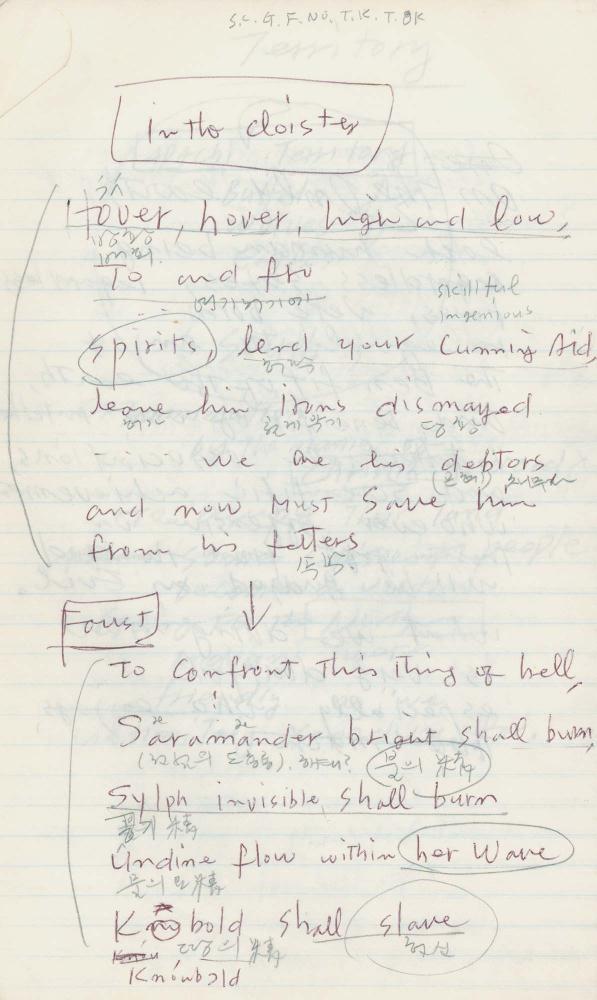 S.C. G. F. NO, T. K. T. BK
Territory
in tho cloister
Hover, hover, high and low,
To and fro
여기저기에
skillful
ingenious
Spirits, lend your Cunning Aid,
leave him irons dismayed
허락
당황
we are his deptors
and now must save him
from his fetters
속박
Foust
To Confront This Thing of hell,
Saramander bright shall burn,
(전설의 도롱뇽)
불의 精
Sylph invisible shall burn
공기 精
Undine flow within her Wave
물의 女精
Knobold shall slave
땅의 精
헌신
Knowbold